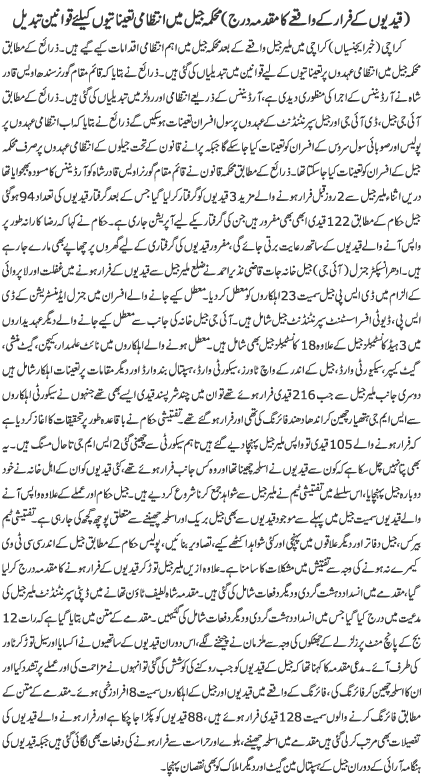 (قیدیوں کے فرار کے واقعے کا مقدمہ درج) محکمہ جیل میں انتظامی تعیناتیوں کیلئے قوانین تبدیل
کراچی (خبر ایجنسیاں) کراچی میں ملیر جیل واقعے کے بعد محکمہ جیل میں اہم انتظامی اقدامات کیے گیے ہیں۔ ذرائع کے مطابق
محکمہ جیل میں انتظامی عہدوں پر تعیناتیوں کے لیے قوانین میں تبدیلیاں کی گئی ہیں۔ ذرائع نے بتایا کہ قائم مقام گورنر سندھ اویس قادر
شاہ نے آرڈیننس کے اجرا کی منظوری دیدی ہے، آرڈیننس کے ذریعے انتظامی اور رولز میں تبدیلیاں کی گئی ہیں۔ ذرائع کے مطابق
آئی جی جیل، ڈی آئی جی اور جیل سپرنٹنڈنٹ کے عہدوں پر سول افسران تعینات ہوسکیں گے ذرائع نے بتایا کہ اب انتظامی عہدوں پر
پولیس اور صوبائی سول سروس کے افسران کو تعینات کیا جاسکے گا جبکہ پرانے قانون کے تحت جیلوں کے انتظامی عہدوں پر صرف محکمہ
جیل کے افسران کو تعینات کیا جاسکتا تھا۔ ذرائع کے مطابق محکمہ قانون نے قائم مقام گورنر اویس قادر شاہ کو آرڈیننس کا مسودہ بھجوایا تھا
دریں اثناء ملیر جیل سے 2 روز قبل فرار ہونے والے مزید 3 قیدیوں کو گرفتار کرلیا گیا جس کے بعد گرفتار قیدیوں کی تعداد 94 ہوگئی
جیل حکام کے مطابق 122 قیدی ابھی بھی مفرور ہیں جن کی گرفتاری کے لیے آپریشن جاری ہے۔ حکام نے کہا کہ رضا کارانہ طور پر
واپس آنے والے قیدیوں کے ساتھ رعایت برتی جائے گی، مفرور قیدیوں کی گرفتاری کے لیے گھروں پر چھاپے بھی مارے جارہے
ہیں۔ ادھر انسپکٹر جنرل (آئی جی) جیل خانہ جات قاضی نذیر احمد نے ضلع ملیر جیل سے قیدیوں کے فرار ہونے میں غفلت اور لاپروائی
کے الزام میں ڈی ایس پی جیل سمیت 23 اہلکاروں کو معطل کردیا۔ معطل کیے جانے والے افسران میں جنرل ایڈمنسٹریشن کے ڈی
ایس پی، ڈیوٹی افسر اسسٹنٹ سپرنٹنڈنٹ جیل شامل ہیں۔ آئی جی جیل خانہ کی جانب سے معطل کیے جانے والے دیگر عہدیداروں میں
3 ہیڈ کانسٹیبلز جیل کے علاوہ 18 کانسٹیبلز جیل بھی شامل ہیں۔ معطل ہونے والے اہلکاروں میں نائٹ عملدار، پیچن، گیٹ منشی،
گیٹ کیپر، سیکورٹی وارڈ، جیل کے اندر کے واچ ٹاورز، سیکورٹی وارڈ، ہسپتال بند وارڈ اور دیگر مقامات پر تعینات اہلکار شامل ہیں
دوسری جانب ملیر جیل سے جب 216 قیدی فرار ہوئے تھے تو ان میں چند شرپسند قیدی ایسے بھی تھے جنہوں نے سیکورٹی اہلکاروں سے
ایس ایم جی ہتھیار چھین کر اندھا دھند فائرنگ کی تھی اور فرار ہوگئے تھے۔ تفتیشی حکام نے باقاعدہ طور پر تحقیقات کا آغاز کردیا ہے
کہ فرار ہونے والے 105 قیدی تو واپس ملیر جیل پہنچا دیے گیے ہیں تاہم سیکورٹی سے چھینی گئی 2 ایس ایم جی تاحال مسنگ ہیں۔ یہ
بھی پتا نہیں چل سکا ہے کہ کون سے قیدیوں نے اسلحہ چھینا تھا اور وہ کس جانب فرار ہوئے تھے، کئی قیدیوں کو ان کے اہل خانہ نے خود
دوبارہ جیل پہنچایا، اس سلسلے میں تفتیشی ٹیم نے ملیر جیل سے شواہد جمع کرنا شروع کر دیے ہیں۔ جیل حکام اور عملے کے علاوہ واپس آنے
والے قیدیوں سمیت جیل میں پہلے سے موجود قیدیوں سے بھی جیل بریک اور اسلحہ چھیننے سے متعلق پوچھ گچھ کی جارہی ہے۔ تفتیشی ٹیم
بیرکس، جیل دفاتر اور دیگر علاقوں میں پہنچی اور کئی شواہد اکٹھے کیے، تصاویر بنائیں، پولیس حکام کے مطابق جیل کے اندر سی سی ٹی وی
کیمرے نہ ہونے کی وجہ سے تفتیش میں مشکلات کا سامنا ہے۔ علاوہ ازیں ملیر جیل توڑ کر قیدیوں کے فرار ہونے کا مقدمہ درج کرلیا
گیا ہے جس میں انسداد دہشت گردی و دیگر دفعات شامل کی گئی ہیں۔ مقدمہ شاہ لطیف ٹاؤن تھانے میں ڈپٹی سپرنٹنڈنٹ ملیر جیل کی
مدعیت میں درج کیا گیا جس میں انسداد دہشت گردی و دیگر دفعات شامل کی گئیں۔ مقدمے کے متن میں بتایا گیا ہے کہ رات 12
بج کے پانچ منٹ پر زلزلے کے جھٹکوں کی وجہ سے ملزمان نے چیخنے لگے، اس دوران قیدیوں کے ساتھیوں نے اکسایا اور سیل توڑ کر اور
کی طرف آئے۔ مدعی مقدمہ کا کہنا تھا کہ جیل کے قیدیوں کو جب روکنے کی کوشش کی گئی تو انہوں نے مزاحمت کی اور عملے پر تشدد کیا اور
ان کا اسلحہ چھین کر فائرنگ کی، فائرنگ کے واقعے میں قیدیوں اور جیل کے اہلکاروں سمیت 8 افراد زخمی ہوئے۔ مقدمے کے متن کے
مطابق فائرنگ کرنے والوں سمیت 128 قیدی فرار ہوئے ہیں، 88 قیدیوں کو پکڑا جاچکا ہے اور فرار ہونے والے قیدیوں کی
تفصیلات بھی مرتب کرلی گئی ہیں مقدمے میں اسلحہ چھیننے، بلوے اور حراست سے فرار ہونے کی دفعات بھی لگائی گئی ہیں جبکہ قیدیوں کی
ہنگامہ آرائی کے دوران جیل کے ہسپتال مین گیٹ اور دیگر املاک کو بھی نقصان پہنچا۔